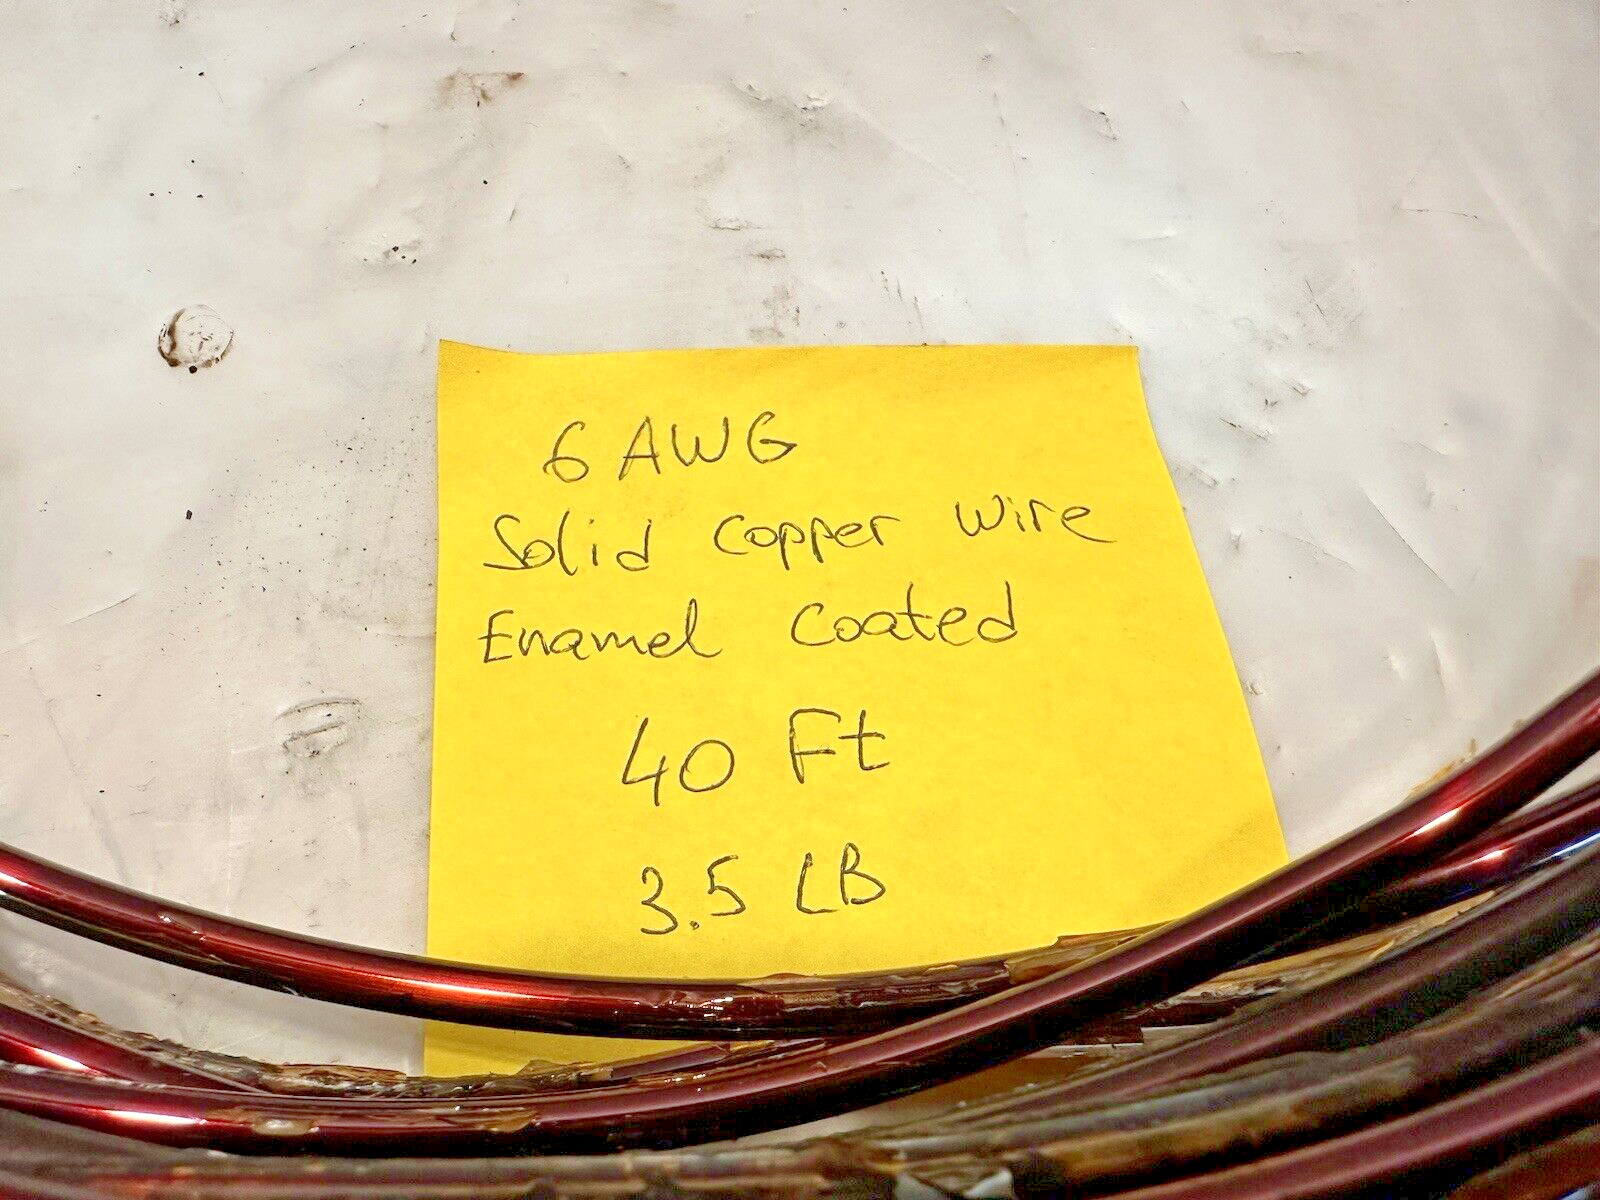 6 AWG
Solid Copper Wire
Enamel Coated
40 Ft
3.5 LB